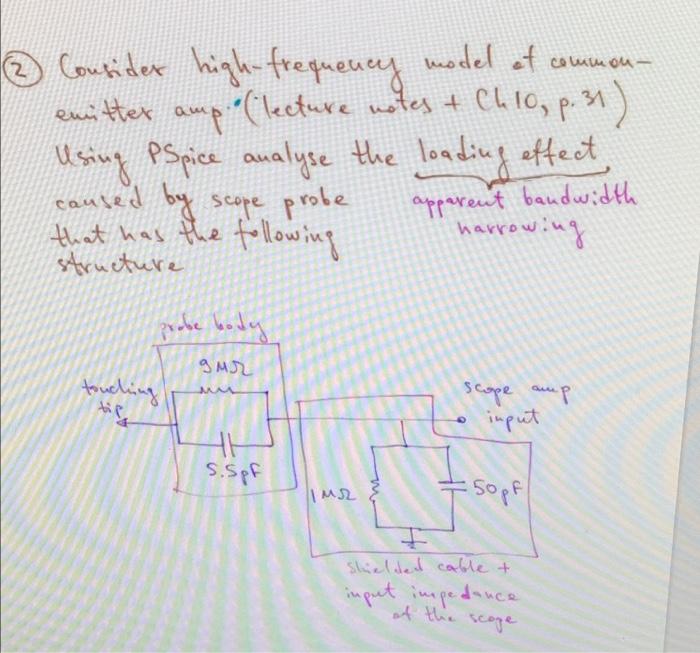 ② Consider high-frequency model of common-
emitter amp. (lecture notes + Ch10, p. 31)
Using PSpice analyse the loading effect
caused by scope probe
apparent bandwidth
that has the following
narrowing
structure
probe body
9MΩ
touching
tip
scope amp
input
5.5pF
1MΩ
50pF
shielded cable +
input impedance
of the scope